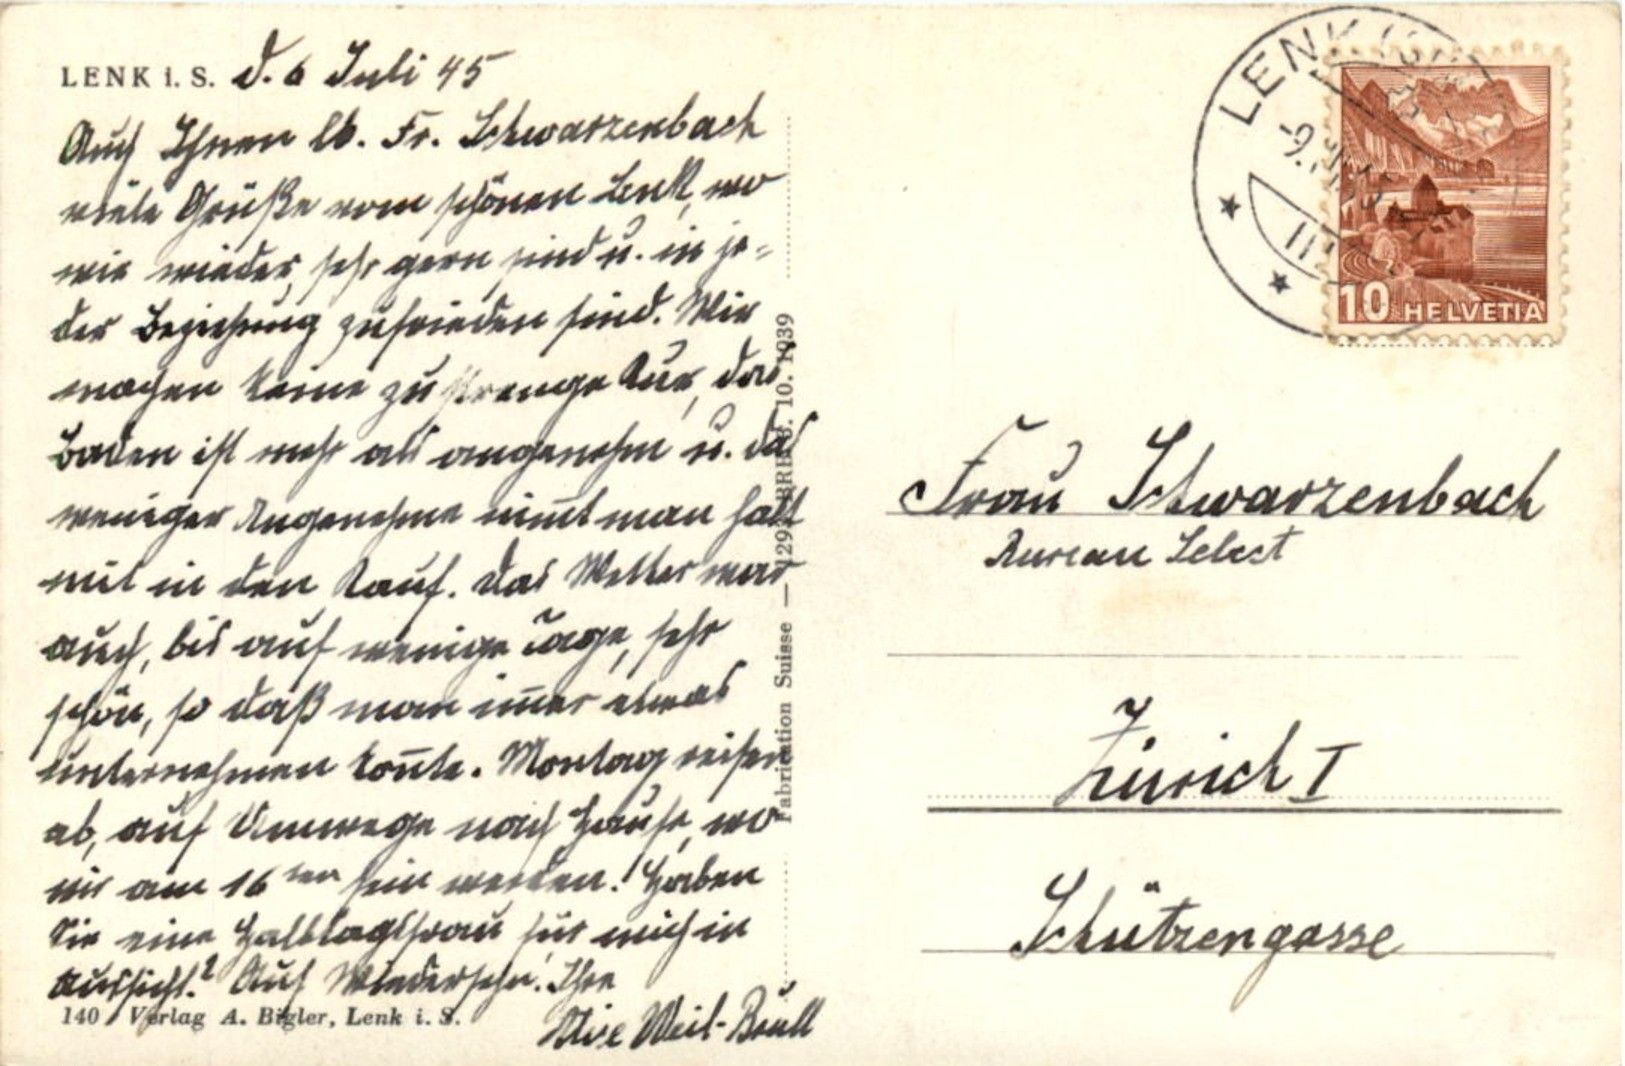 LENK i. S. d. 6 Juli 45
Auch Ihnen lb. Fr. Schwarzenbach
viele Grüße vom schönen Lenk, wo
wir wieder sehr gern sind u. in je=
der Beziehung zufrieden sind. Wir
machen keine zu strenge Kur, das
Baden ist mehr als angenehm u. das
weniger Angenehme nim̅t man halt
mit in den Kauf. Das Wetter war
auch, bis auf wenige Tage, sehr
schön, so daß man im̅er etwas
unternehmen kon̅te. Montag reisen
ab, auf Umwege nach Hause, wo
wir am 16ten sein werden! Haben
Sie eine Halbtagsfrau für mich in
Aussicht? Auf Wiedersehn. Ihre
Weil-Brüll
140 Verlag A. Bigler, Lenk i. S.
Fabrication Suisse — 10. 1939
LENK
10 HELVETIA
Frau Schwarzenbach
Bureau Select
Zürich I
Schützengasse